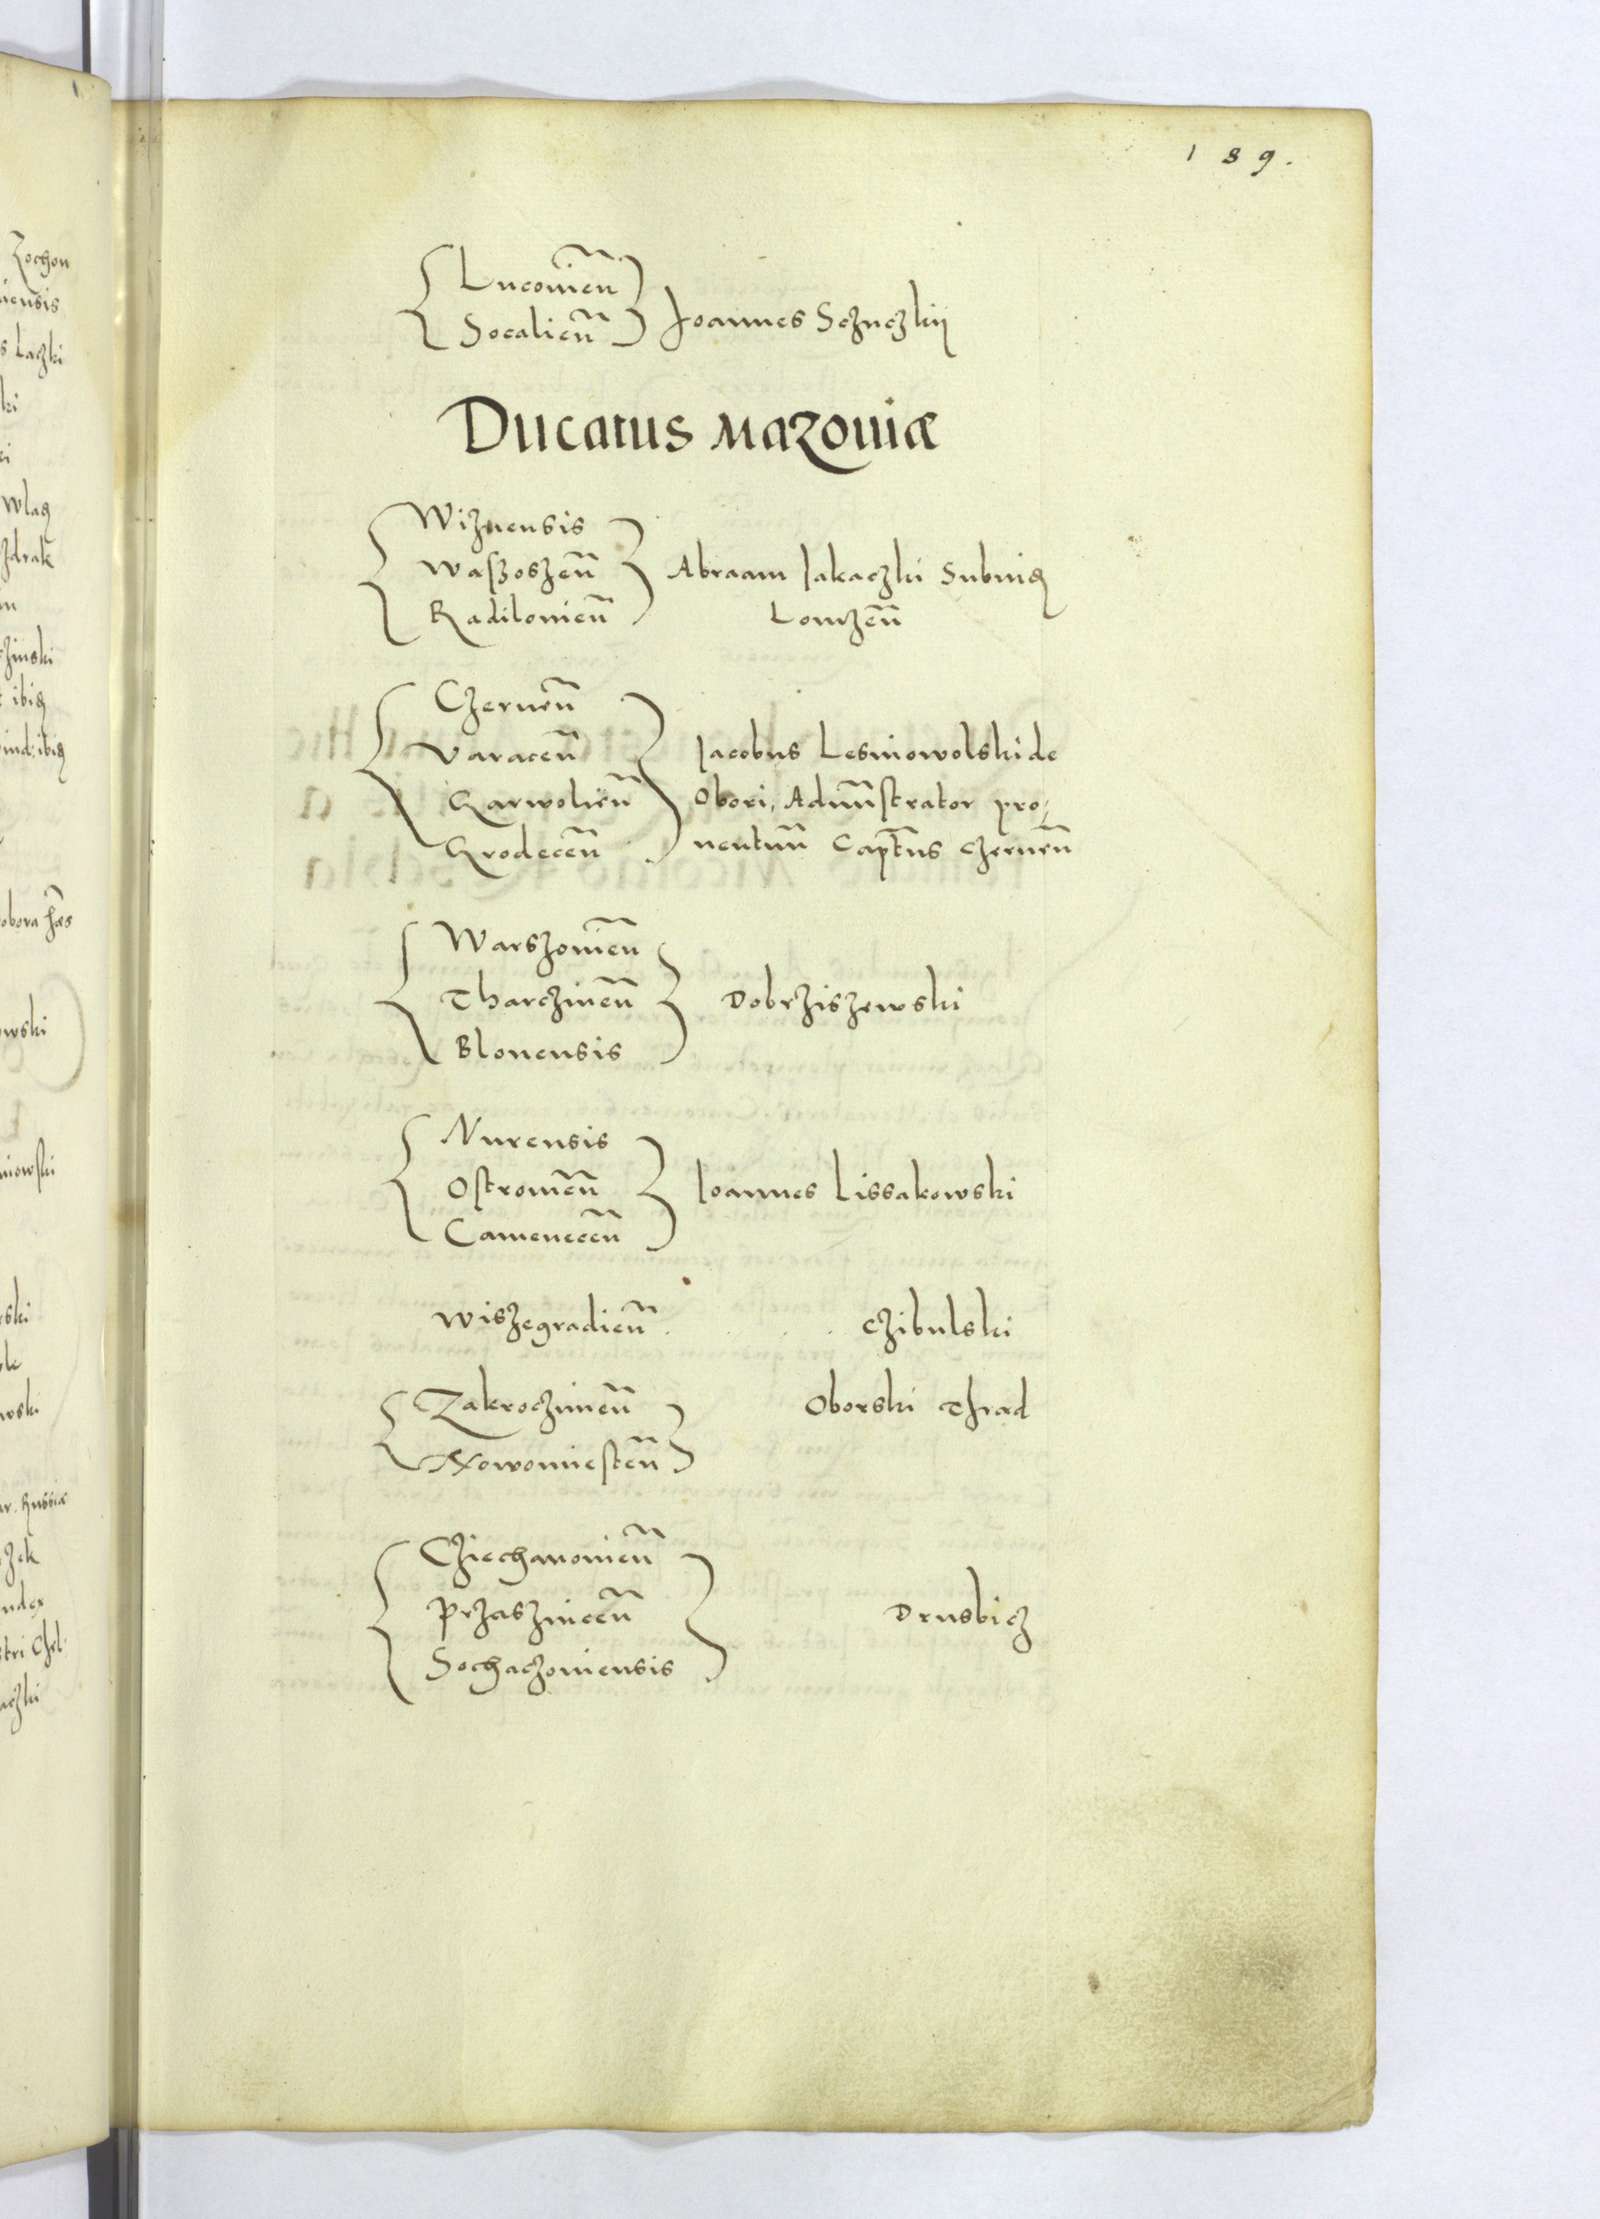 189.
Lucovien̄
Socalien̄
Joannes Sczuczkij
Ducatus Mazoviæ
Wiznensis
Waſzoszen̄
Radilovien̄
Abraam Jakaczki Subiudꝫ
Lomzen̄
Czernen̄
Varacen̄
Garwolien̄
Grodecen̄
Jacobus Lesniowolski de
Obori, Adm̄istrator pro,
ventuū Capt̄nus Czernen̄
Warszovien̄
Tharczinen̄
Blonensis
Dobrziszewski
Nurensis
Oſtrovien̄
Camenecen̄
Joannes Lissakowski
Wiszegradien̄ . . . . Czibulski
Zakroczimen̄
Nowomieſten̄
Oborski
Cziechanovien̄
Przaszniccen̄
Sochaczoviensis
Drusbicz
Zochou
iensis
s Laczki
ki
zdrak
zinski
t ibiꝫ
owski
niowſki
rski
wski
ar. Russiæ
zek
udex
stri Chel
aczki